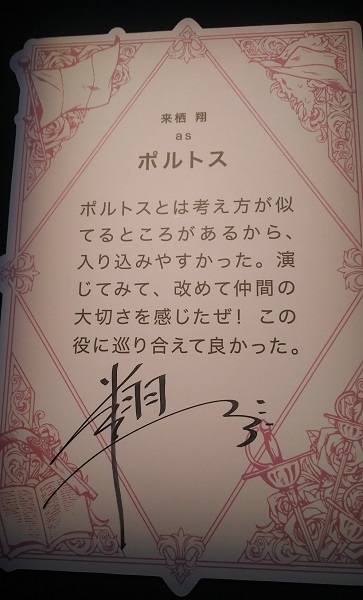 来栖 翔
as
ポルトス
ポルトスとは考え方が似
てるところがあるから、
入り込みやすかった。演
じてみて、改めて仲間の
大切さを感じたぜ! この
役に巡り合えて良かった。
翔